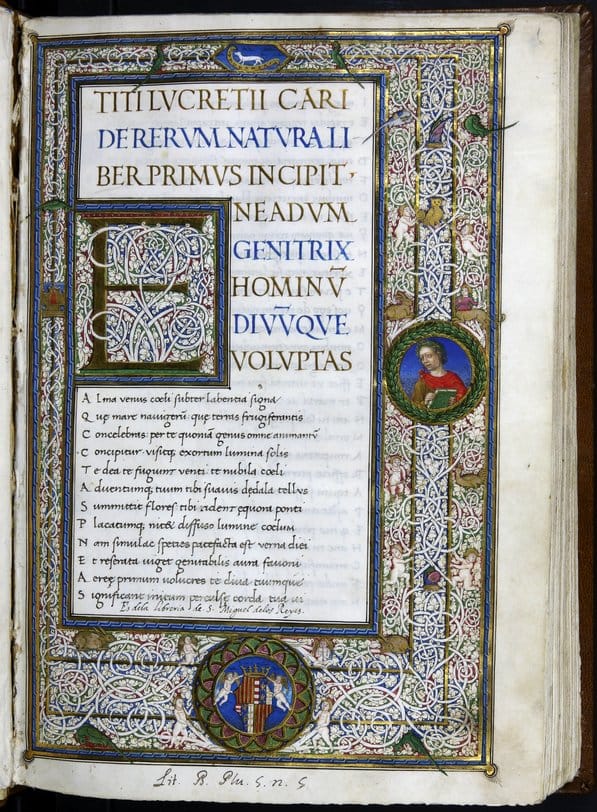 TITI LVCRETII CARI
DE RERVM NATVRA LI
BER PRIMVS INCIPIT·
E NEADVM
GENITRIX
HOMINV̄
DIVV̄QVE
VOLVPTAS
Alma venus cœli subter labentia signa
Que mare nauigerū. que terras frugiferantis
Concelebras: per te quoniā genus omne animantū
Concipitur. visitq; exortum lumina solis
Te dea te fugiunt venti te nubila cœli
Aduentumq; tuum tibi suauis dędala tellus
Summittit flores tibi rident equora ponti
Placatumq; nitet diffuso lumine cœlum
Nam simulac species patefacta est verna diei
Et reserata uiget genitabilis aura fauoni
Aereę primum volucres te diua tuumque
Significant initum perculse corda tua ui
Es dela libreria de S. Miguel delos Reyes.
Lit. B. Plu. 5. n. 5